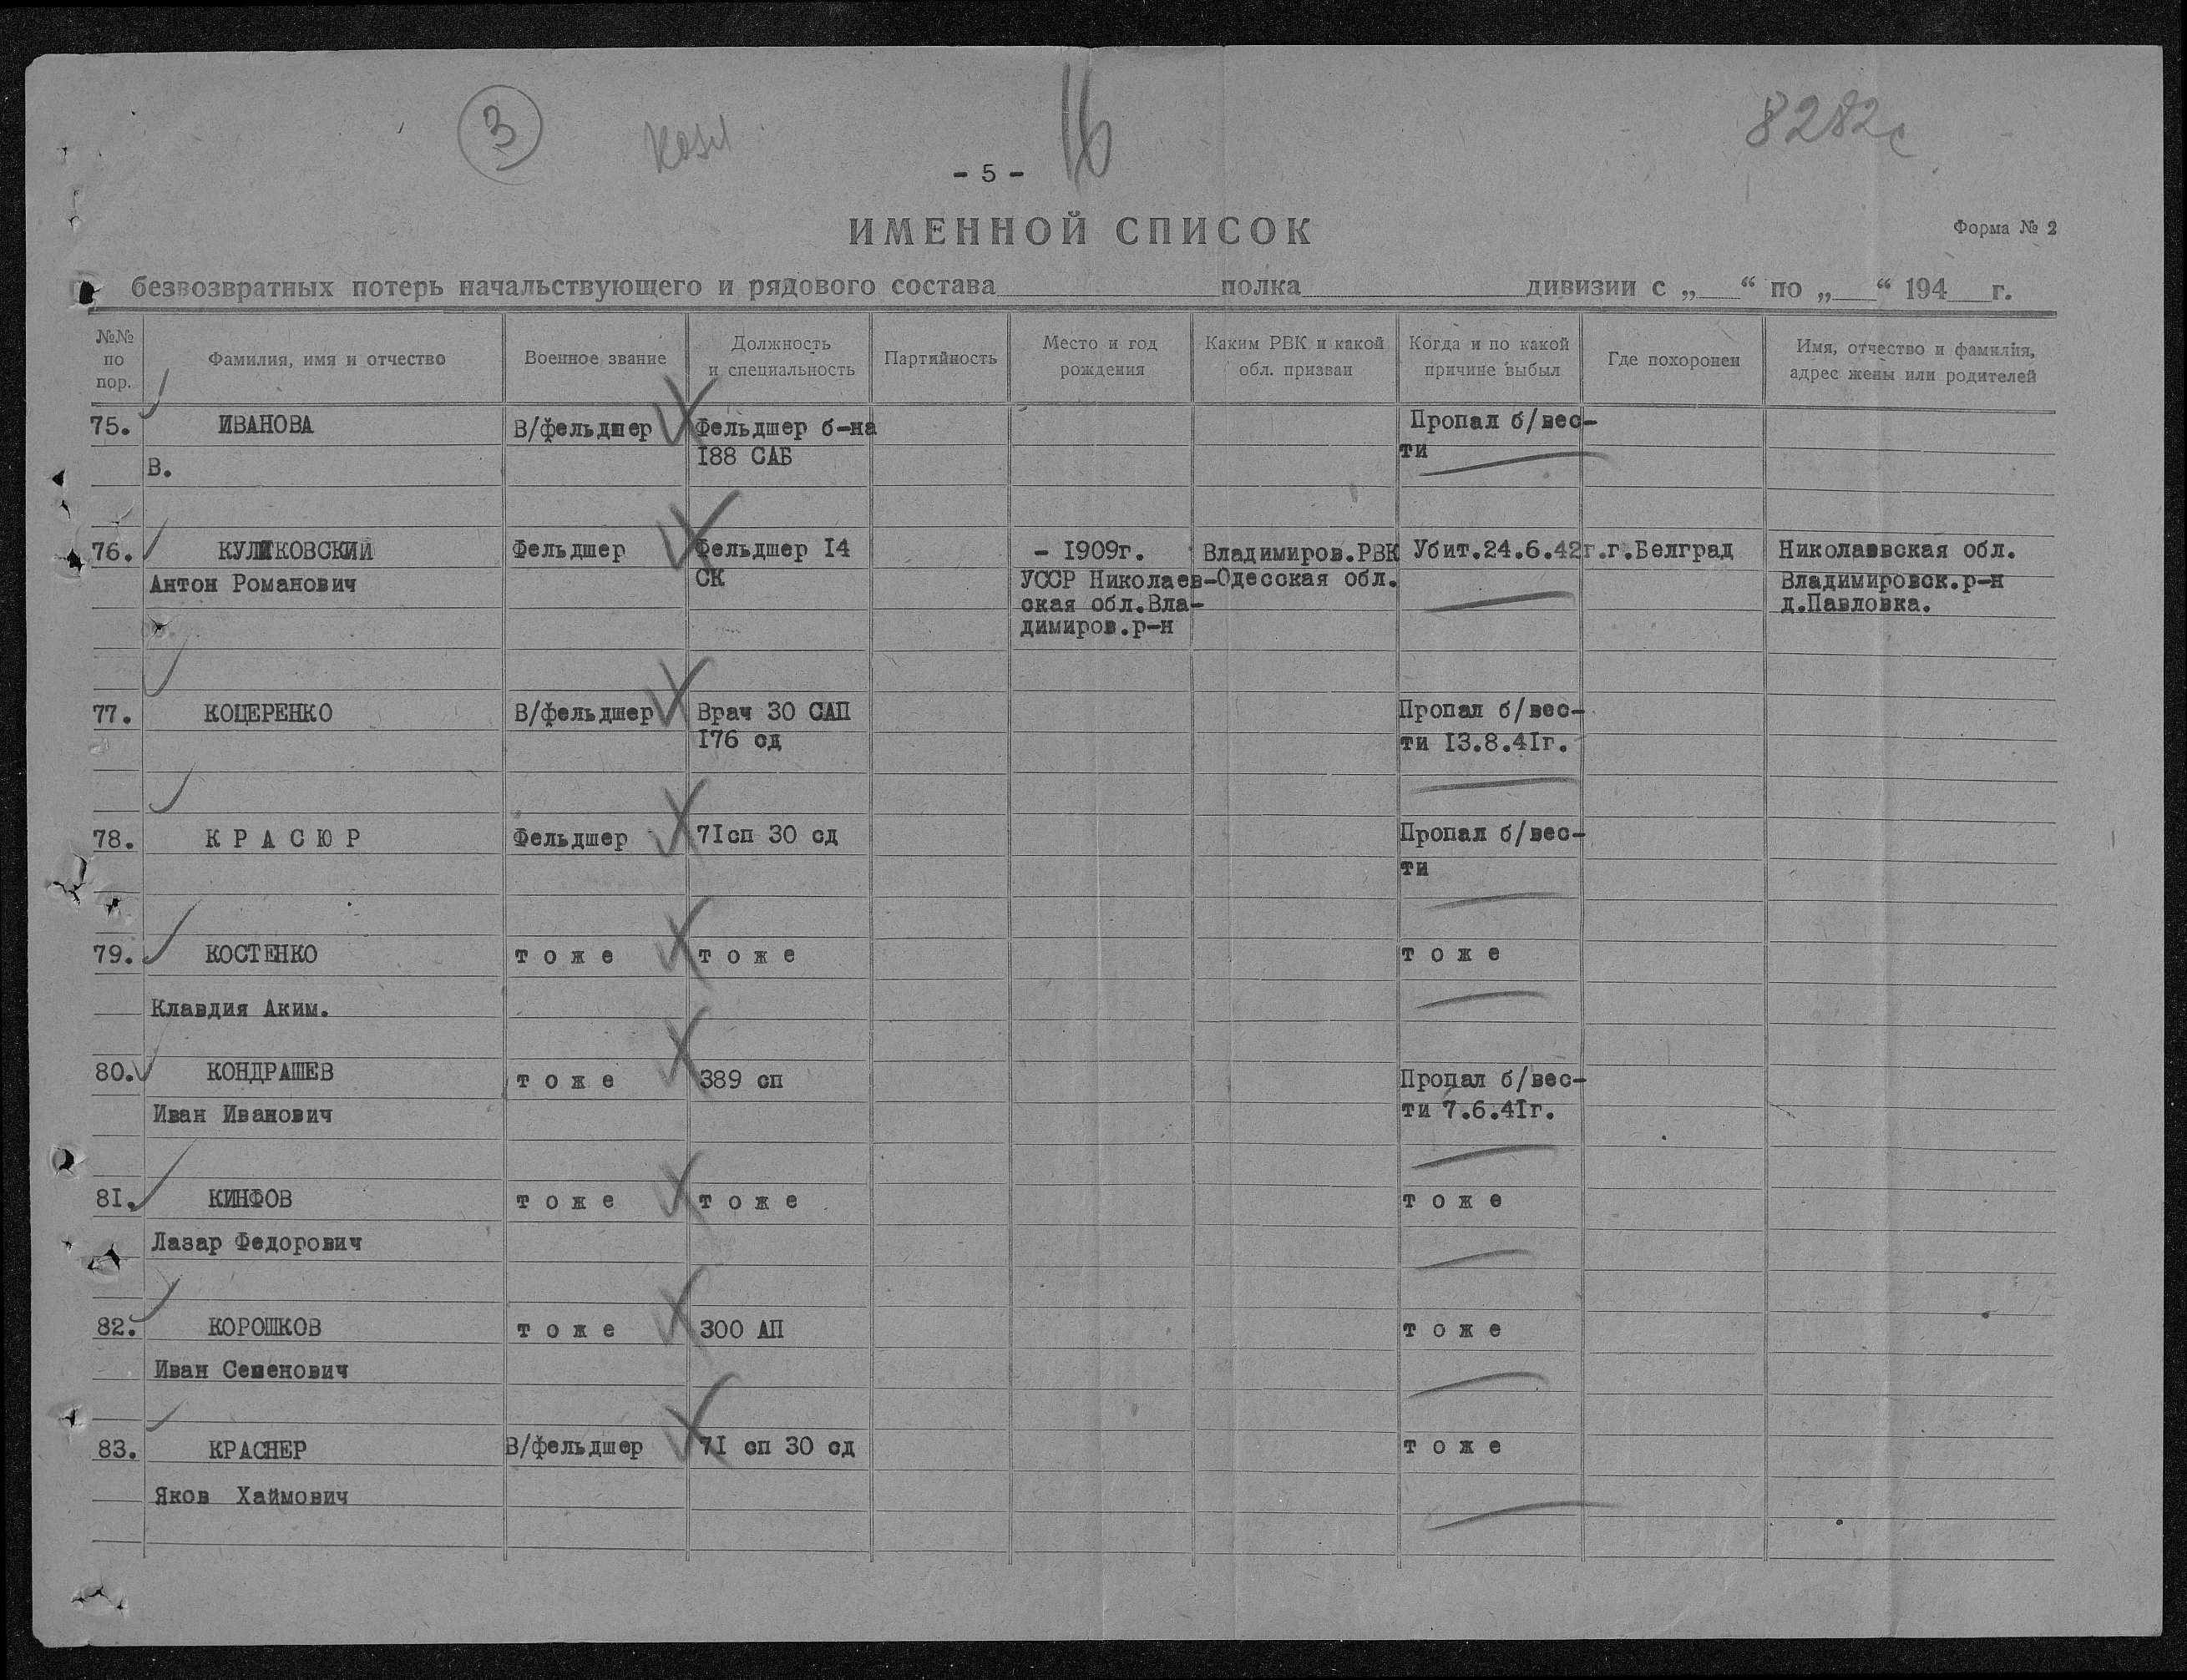 3
16
8282с
- 5 -
ИМЕННОЙ СПИСОК
Форма № 2
безвозвратных потерь начальствующего и рядового состава полка дивизии с „ “ по „ “ 194 г.
№№ по пор.
Фамилия, имя и отчество
Военное звание
Должность и специальность
Партийность
Место и год рождения
Каким РВК и какой обл. призван
Когда и по какой причине выбыл
Где похоронен
Имя, отчество и фамилия, адрес жены или родителей
75. ИВАНОВА В/фельдшер Фельдшер б-на Пропал б/вес-
В. 188 САБ ти
76. КУЛИКОВСКИЙ Фельдшер Фельдшер 14 - 1909г. Владимиров.РВК Убит.24.6.42г. г.Белград Николаевская обл.
Антон Романович СК УССР Николаев- Одесская обл. Владимировск.р-н
ская обл.Вла- д.Павловка.
димиров.р-н
77. КОЦЕРЕНКО В/фельдшер Врач 30 САП Пропал б/вес-
176 сд ти 13.8.41г.
78. К Р А С Ю Р Фельдшер 71сп 30 сд Пропал б/вес-
ти
79. КОСТЕНКО т о ж е т о ж е т о ж е
Клавдия Аким.
80. КОНДРАШЕВ т о ж е 389 сп Пропал б/вес-
Иван Иванович ти 7.6.41г.
81. КИНФОВ т о ж е т о ж е т о ж е
Лазар Федорович
82. КОРОШКОВ т о ж е 300 АП т о ж е
Иван Семенович
83. КРАСНЕР В/фельдшер 71 сп 30 сд т о ж е
Яков Хаймович